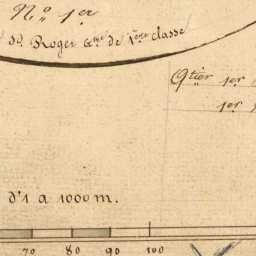 N.o 1er
Sr. Roger Gme de 1ère classe
Qtier 1er
1er
d'1 a 1000 m.
70 80 90 100